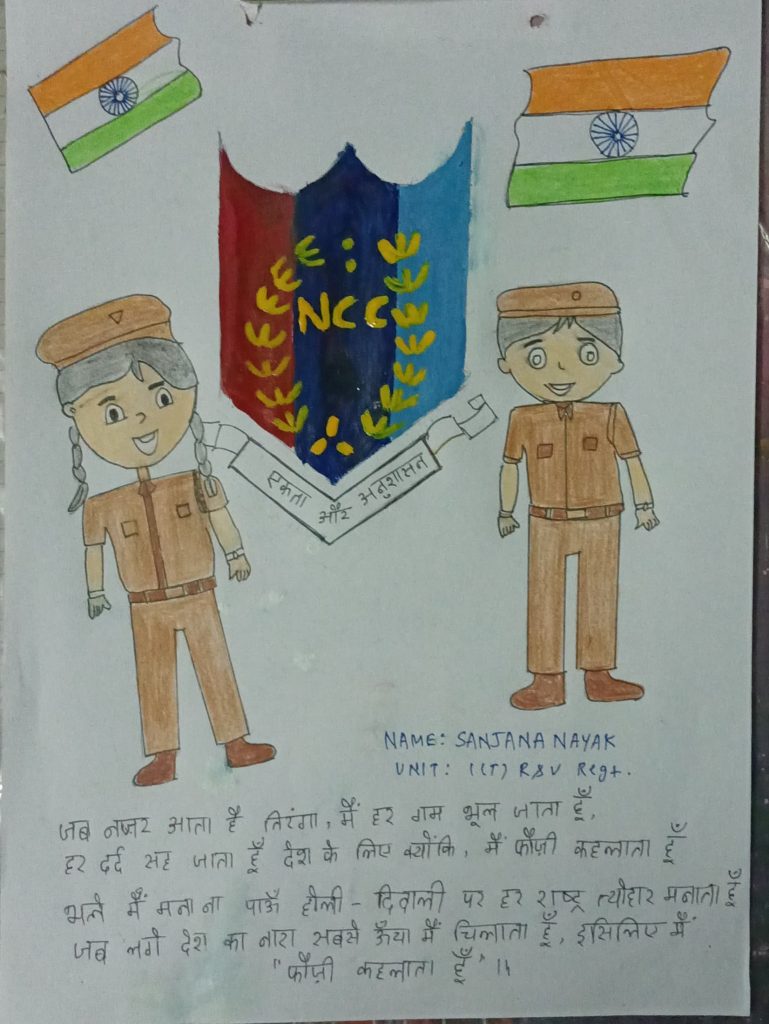 NCC
एकता और अनुशासन
NAME: SANJANA NAYAK
UNIT: 1(T) R&V Regt.
जब नज़र आता है तिरंगा, मैं हर गम भूल जाता हूँ,
हर दर्द सह जाता हूँ देश के लिए क्योंकि, मैं फ़ौज़ी कहलाता हूँ
भले मैं मना ना पाऊँ होली - दिवाली पर हर राष्ट्र त्यौहार मनाता हूँ
जब लगे देश का नारा सबसे ऊँचा मैं चिलाता हूँ, इसिलिए मैं
"फ़ौज़ी कहलाता हूँ" ।।